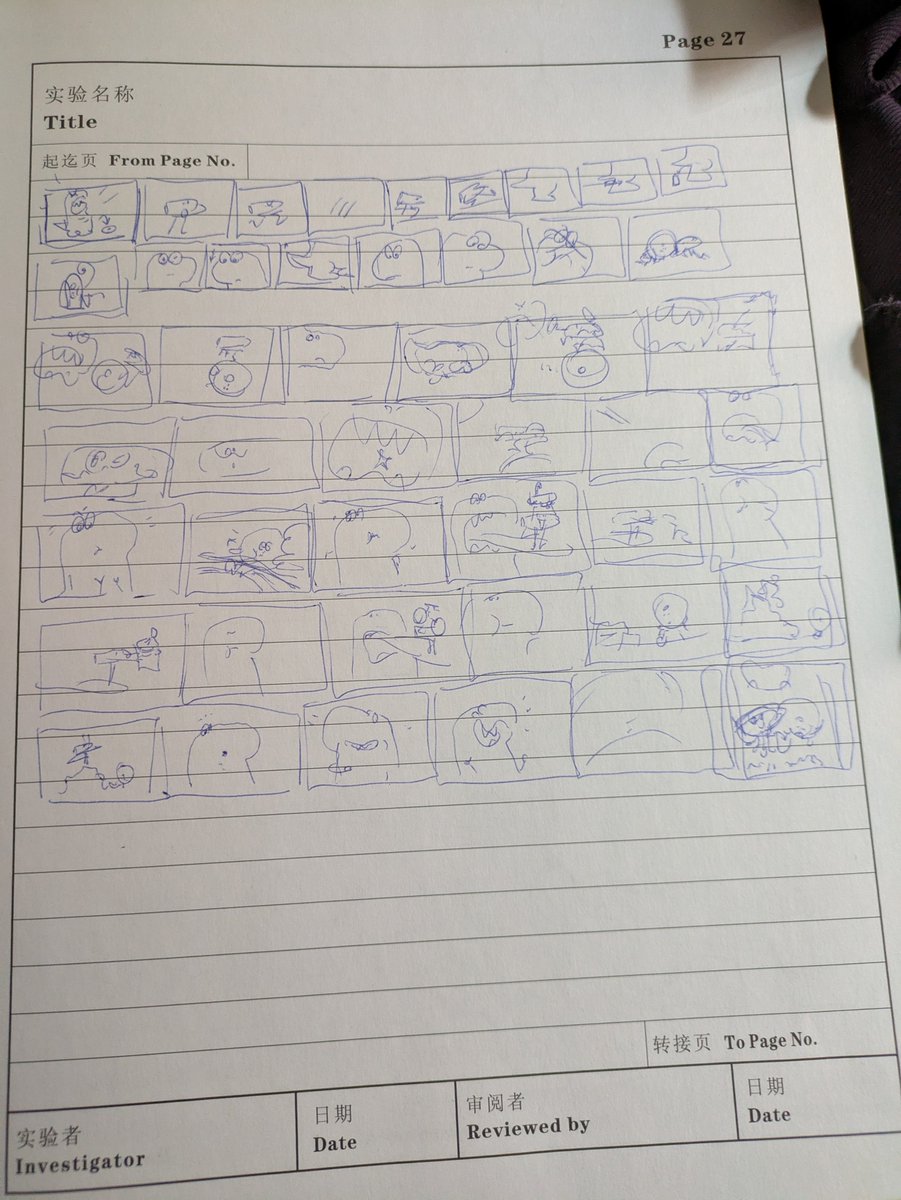 Page 27
实验名称
Title
起迄页 From Page No.
转接页 To Page No.
实验者
Investigator
日期
Date
审阅者
Reviewed by
日期
Date